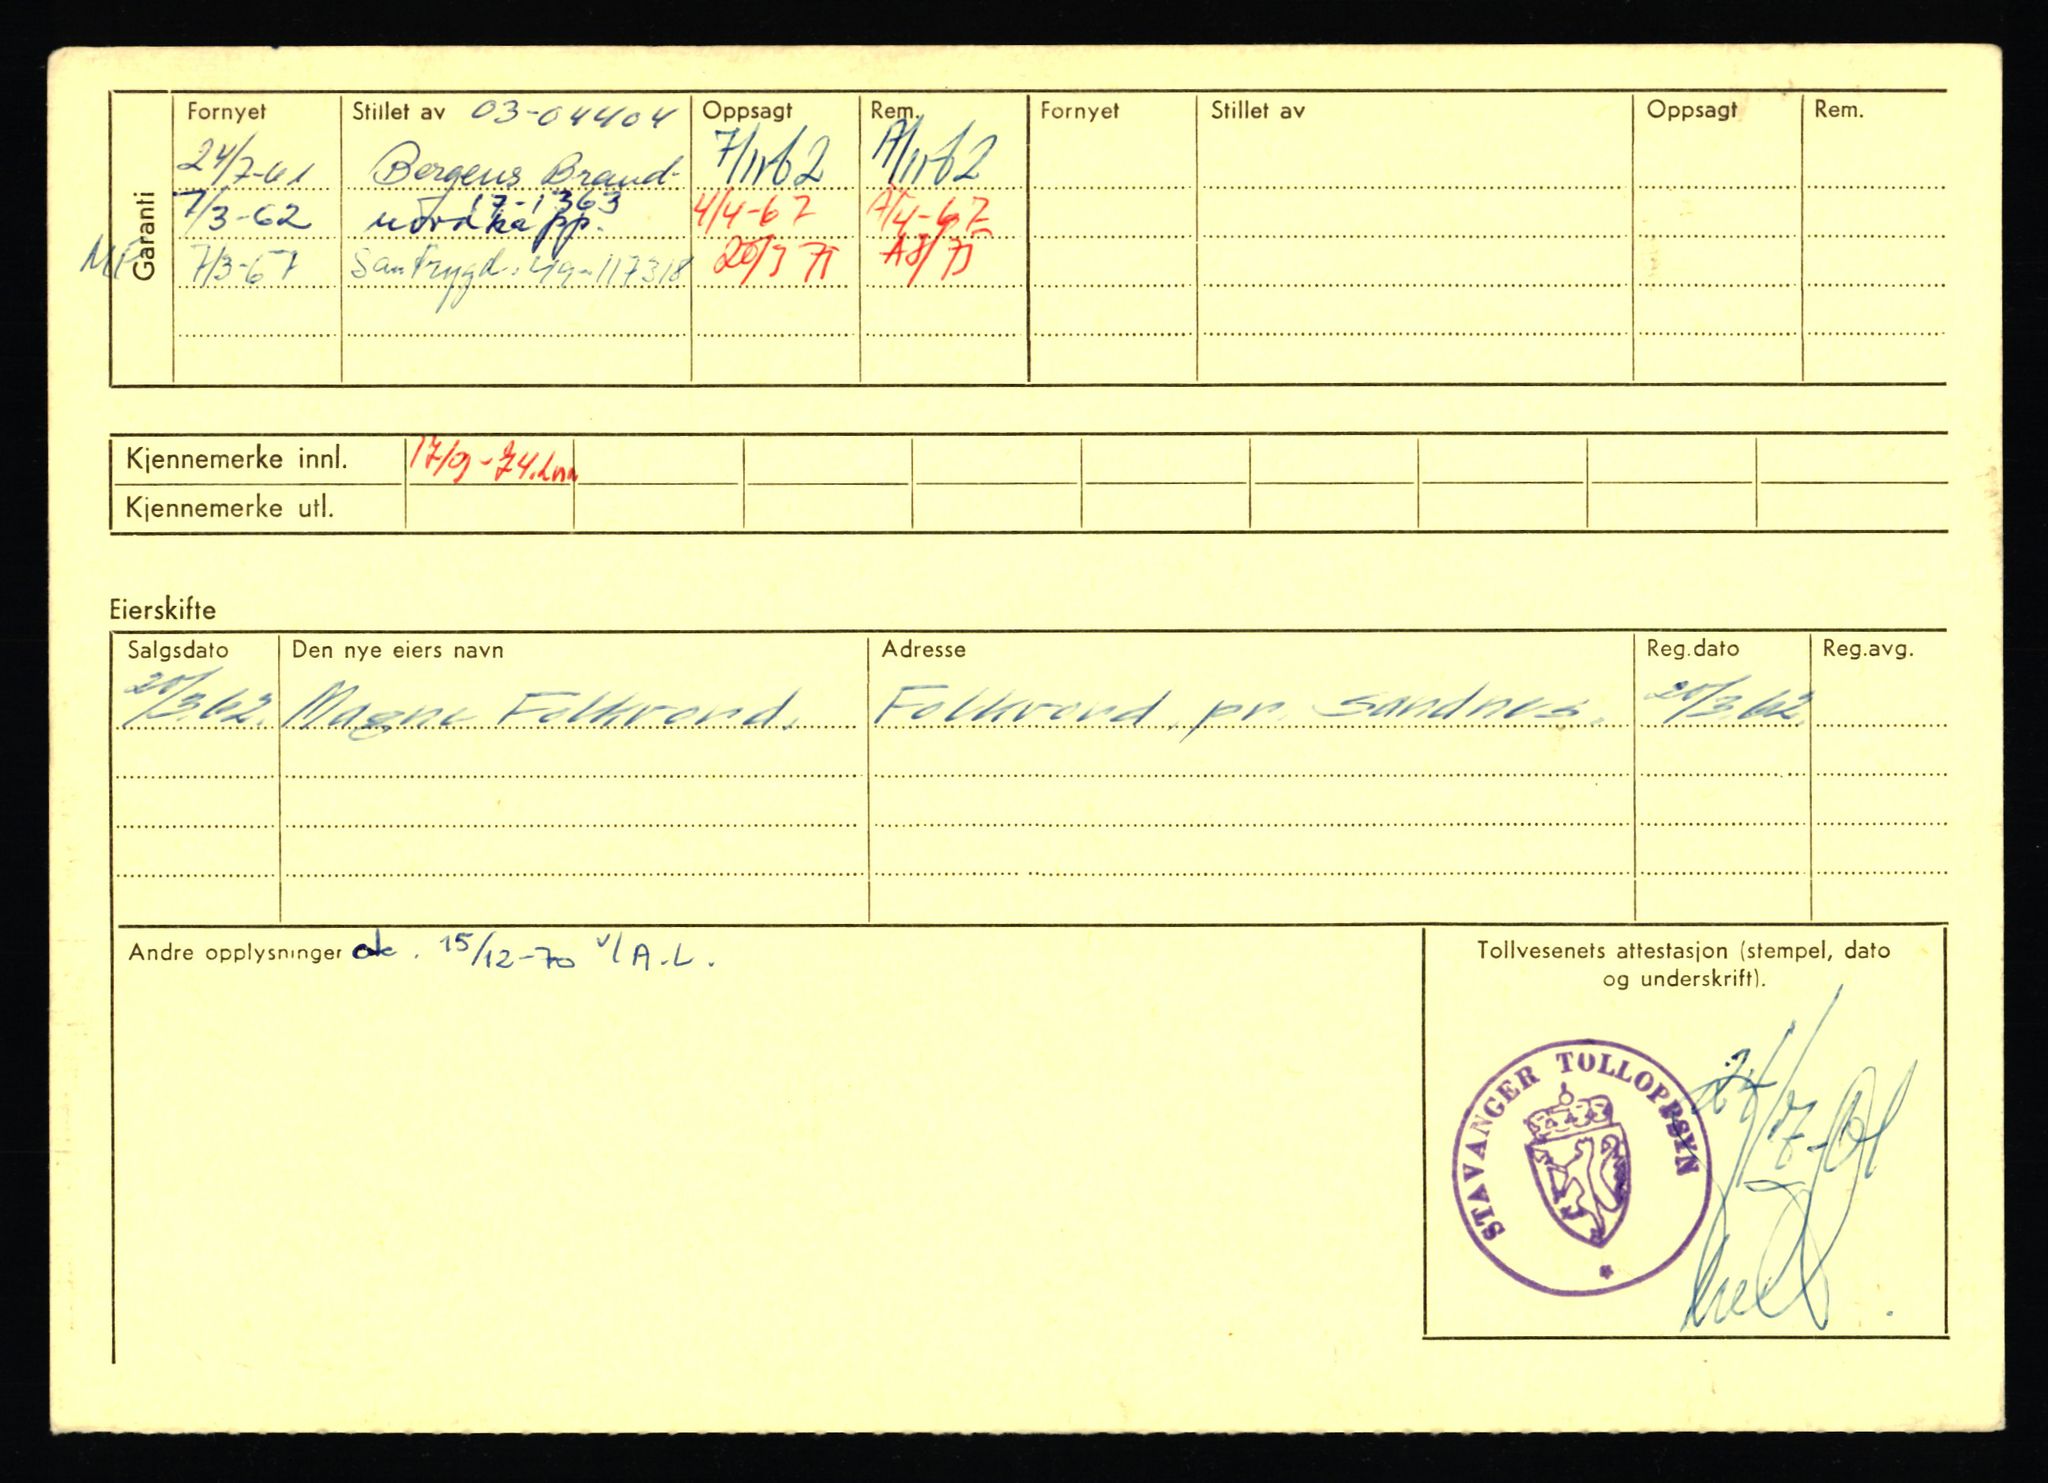 Garanti
Fornyet Stillet av 03-04404 Oppsagt Rem. Fornyet Stillet av Oppsagt Rem.
24/7-61 Bergens Brand-
17-1363
7/3-62 nordkapp. 4/4-67
7/3-67 Samtrygd. 49-117318
Kjennemerke innl. 17/9-74
Kjennemerke utl.
Eierskifte
Salgsdato Den nye eiers navn Adresse Reg.dato Reg.avg.
20/3.62. Magne Folkvord. Folkvord. pr. Sandnes. 20/3.62.
Andre opplysninger ok. 15/12-70 v/ A.L.
Tollvesenets attestasjon (stempel, dato
og underskrift).
STAVANGER TOLLOPPSYN